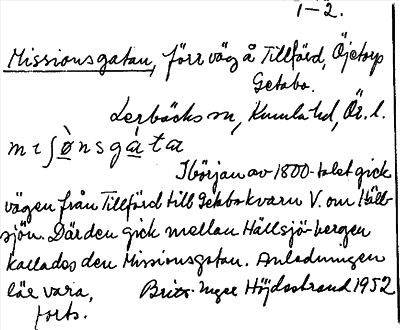 1–2.
Missionsgatan, förr väg å Tillfärd, Öjetorp
Getabo.
Lerbäcks sn, Kumla hd, Ör. l.
mɪʃø̀nsgàta
I början av 1800-talet gick
vägen från Tillfärd till Getabokvarn V. om Häll-
sjön. Där den gick mellan Hällsjö-bergen
kallades den Missionsgatan. Anledningen
lär vara,
forts.
Britt-Inger Höjdestrand 1952